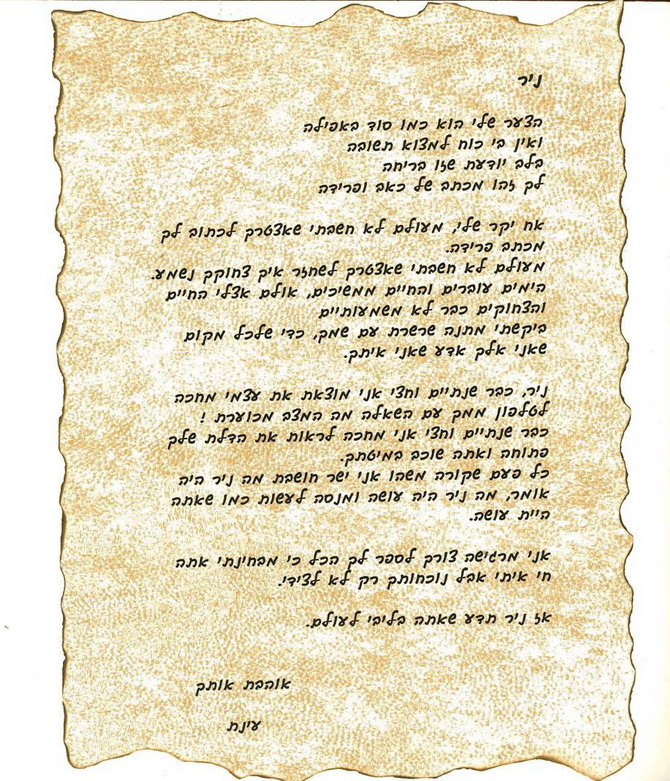 ניר
הצער שלי הוא כמו סוד באפילה
ואין בי כוח למצוא תשובה
בלב יודעת שזו בריחה
לך זהו מכתב של כאב ופרידה
אח יקר שלי, מעולם לא חשבתי שאצטרך לכתוב לך
מכתב פרידה.
מעולם לא חשבתי שאצטרך לשחזר איך צחוקך נשמע.
הימים עוברים והחיים ממשיכים, אולם אצלי החיים
והצחוקים כבר לא משמעותיים
ביקשתי מתנה שרשרת עם שמך, כדי שלכל מקום
שאני אלך אדע שאני איתך.
ניר, כבר שנתיים וחצי אני מוצאת את עצמי מחכה
לטלפון ממך עם השאלה מה המצב מכוערת !
כבר שנתיים וחצי אני מחכה לראות את הדלת שלך
פתוחה ואתה שוכב במיטתך.
כל פעם שקורה משהו אני ישר חושבת מה ניר היה
אומר, מה ניר היה עושה ומנסה לעשות כמו שאתה
היית עושה.
אני מרגישה צורך לספר לך הכל כי מבחינתי אתה
חי איתי אבל נוכחותך רק לא לצידי.
אז ניר תדע שאתה בליבי לעולם.
אוהבת אותך
עינת